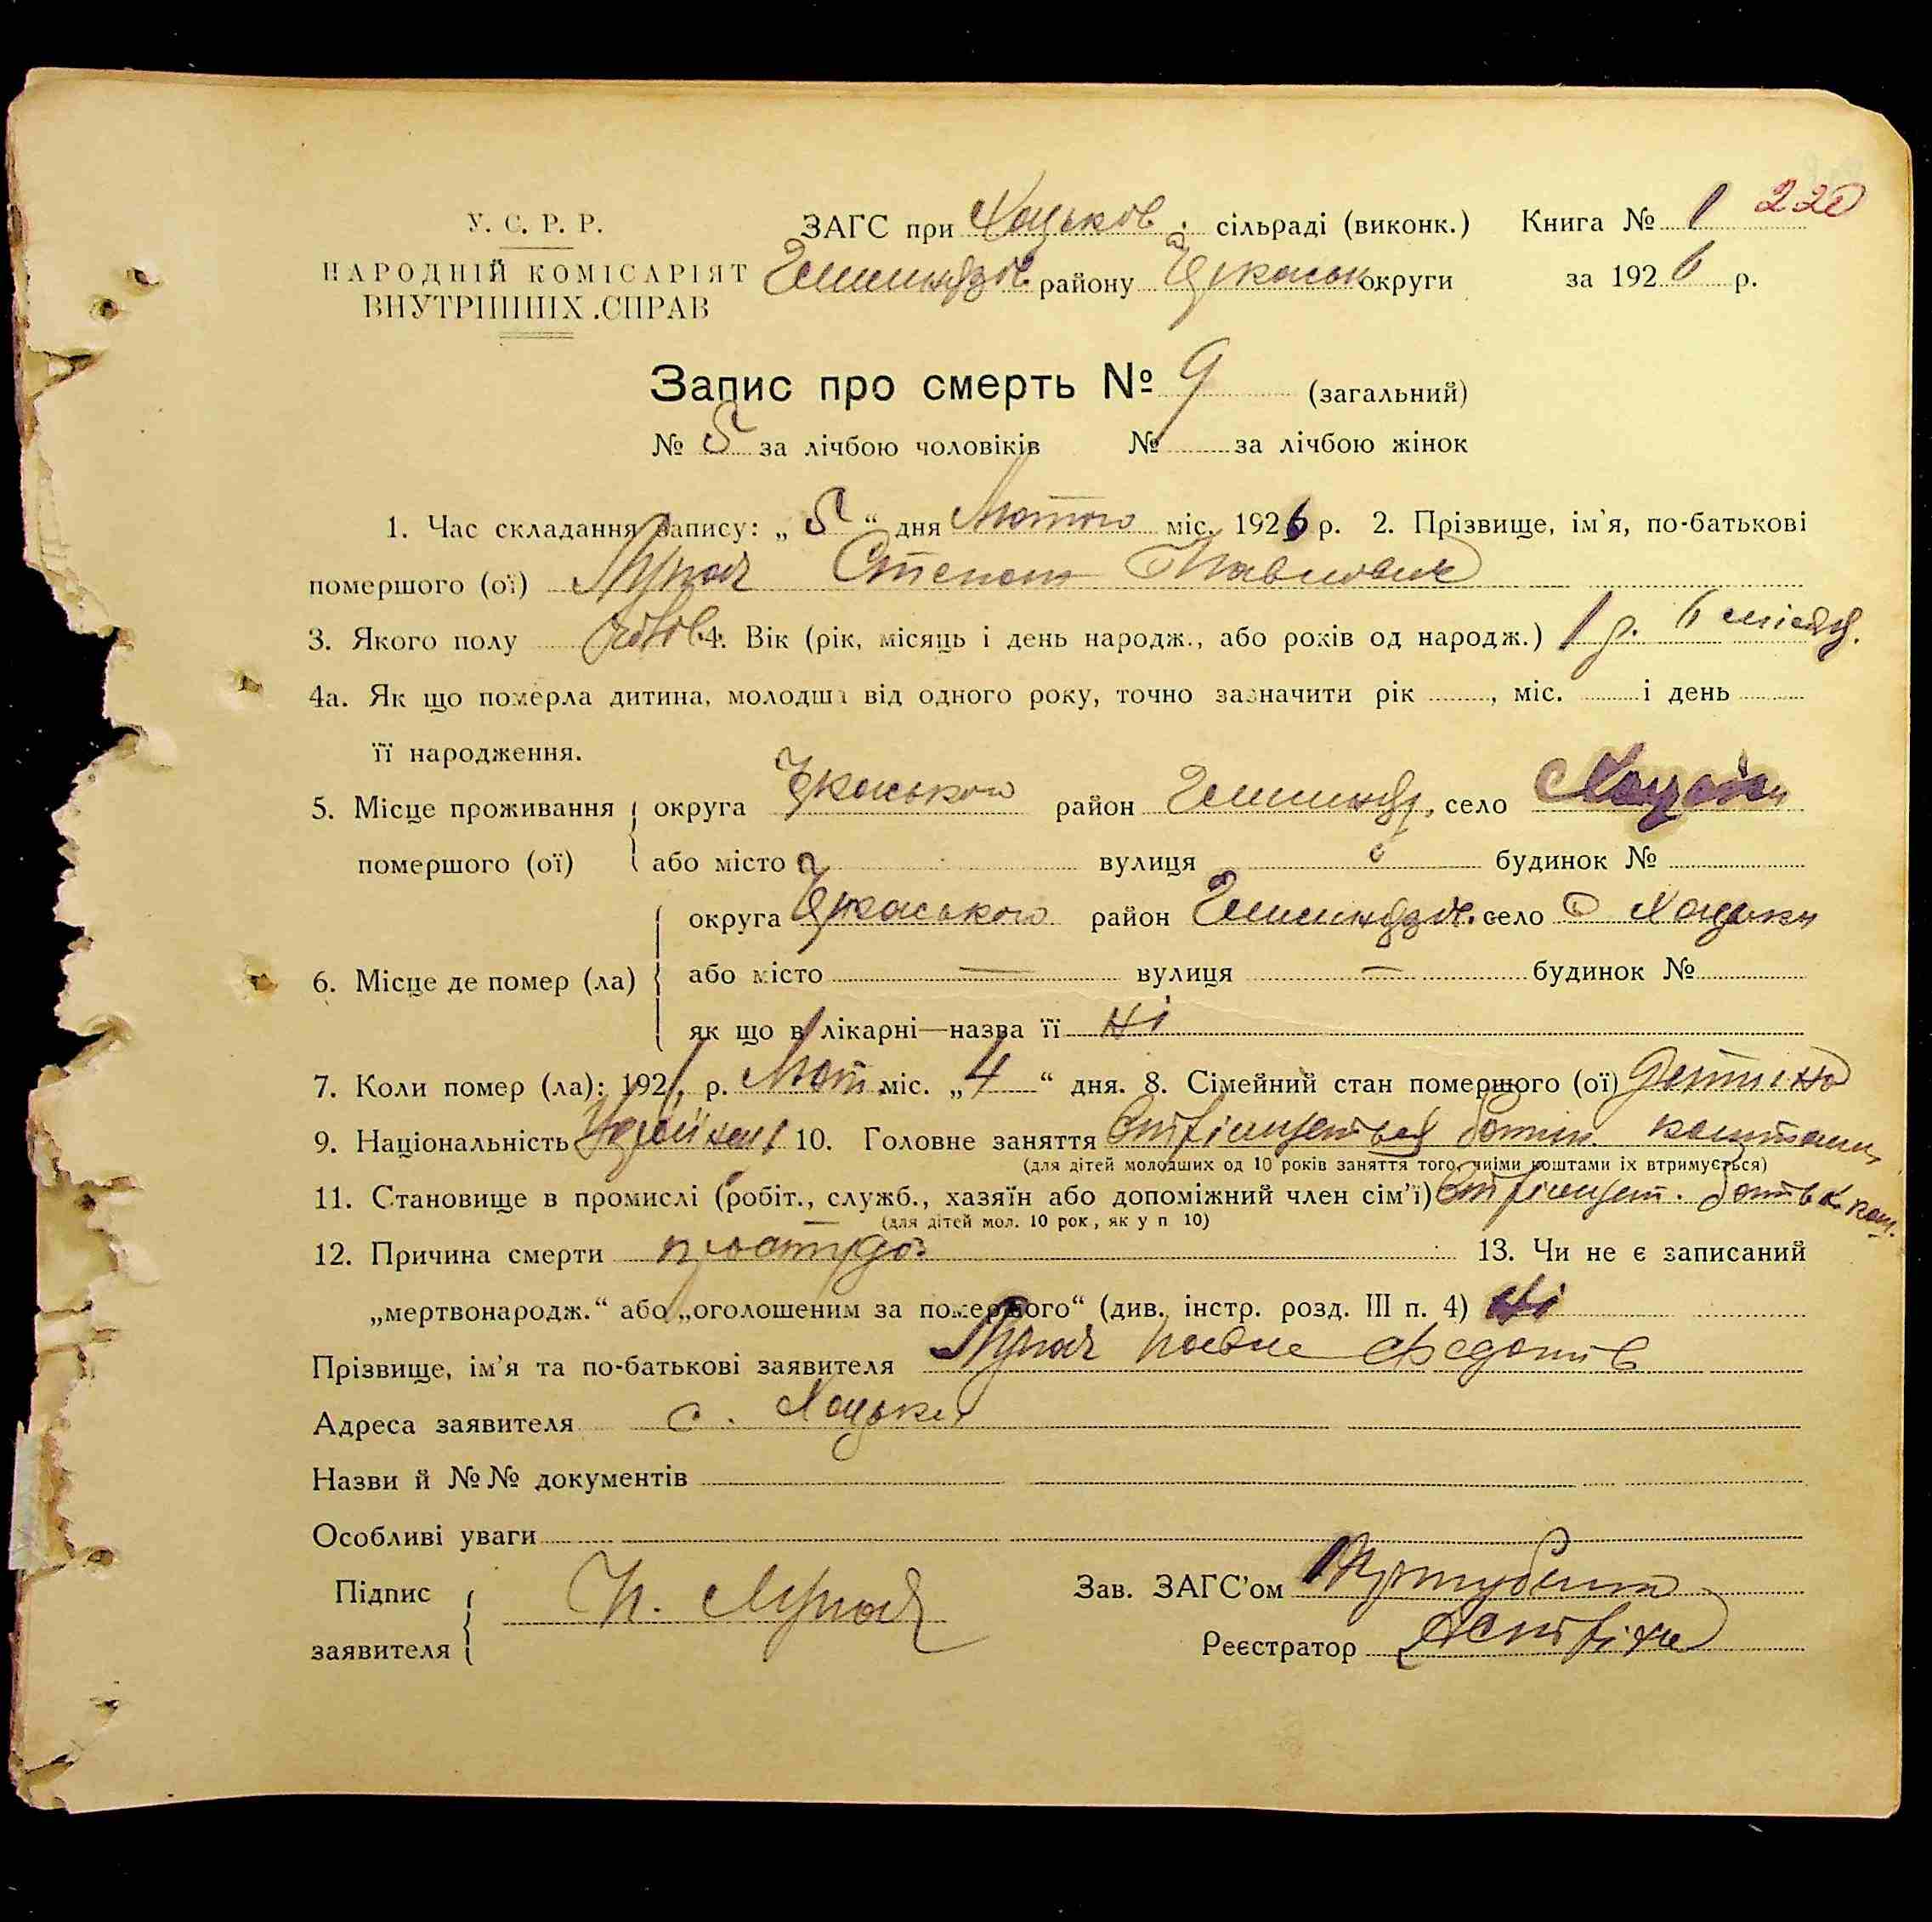 У. С. Р. Р.
НАРОДНІЙ КОМІСАРІЯТ
ВНУТРІШНІХ СПРАВ
ЗАГС при Хоцьков. сільраді (виконк.) Книга № 1 220
Гельмязів. району Черкаськ округи за 1926 р.
Запис про смерть № 9 (загальний)
№ 5 за лічбою чоловіків № за лічбою жінок
1. Час складання запису: „ 5 “ дня Лютого міс. 1926 р. 2. Прізвище, ім'я, по-батькові
помершого (ої) Степан Павлович
3. Якого полу чолов. 4. Вік (рік, місяць і день народж., або років од народж.) 1 р. 6 місяц.
4а. Як що померла дитина, молодша від одного року, точно зазначити рік , міс. і день
її народження.
5. Місце проживання помершого (ої) округа Черкаського район село Хоцьки
або місто вулиця будинок №
6. Місце де помер (ла) округа Черкаського район село Хоцьки
або місто — вулиця — будинок №
як що в лікарні—назва її ні
7. Коли помер (ла): 1926 р. Лют. міс. „ 4 “ дня. 8. Сімейний стан помершого (ої) детина
9. Національність 10. Головне заняття коштами
(для дітей молодших од 10 років заняття того, чиїми коштами їх втримується)
11. Становище в промислі (робіт., служб., хазяїн або допоміжний член сім'ї) батьк. кош.
(для дітей мол. 10 рок, як у п 10)
12. Причина смерти простуда 13. Чи не є записаний
„мертвонародж.“ або „оголошеним за померлого“ (див. інстр. розд. III п. 4) ні
Прізвище, ім'я та по-батькові заявителя Павло Федотів
Адреса заявителя с. Хоцьки
Назви й №№ документів
Особливі уваги
Підпис заявителя
Зав. ЗАГС'ом
Реєстратор